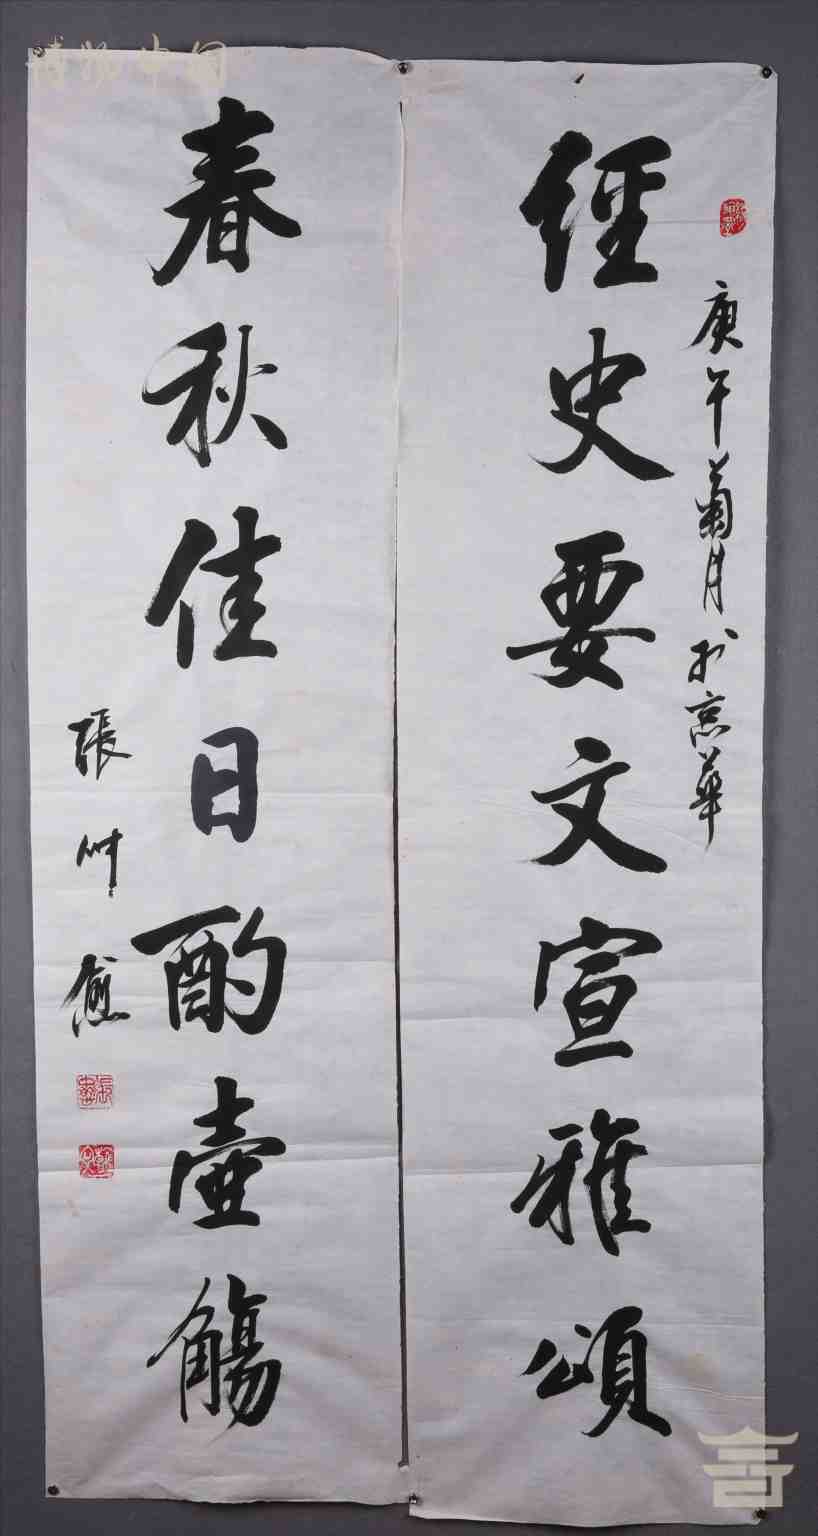 庚午菊月於京華
經史要文宣雅頌
春秋佳日酌壺觴
張艸愈
博物中國